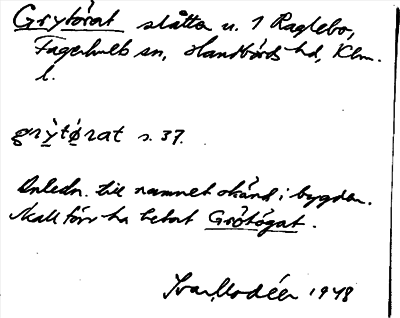 Grytôrat slåtta u. 1 Raglebo,
Fagerhults sn, Handbörds hd, Klm.
l.
gry̆tǿrat s. 37.
Anledn. till namnet okänd i bygden.
Skall förr ha hetat Grötögat.
Ivar Modéer 1948